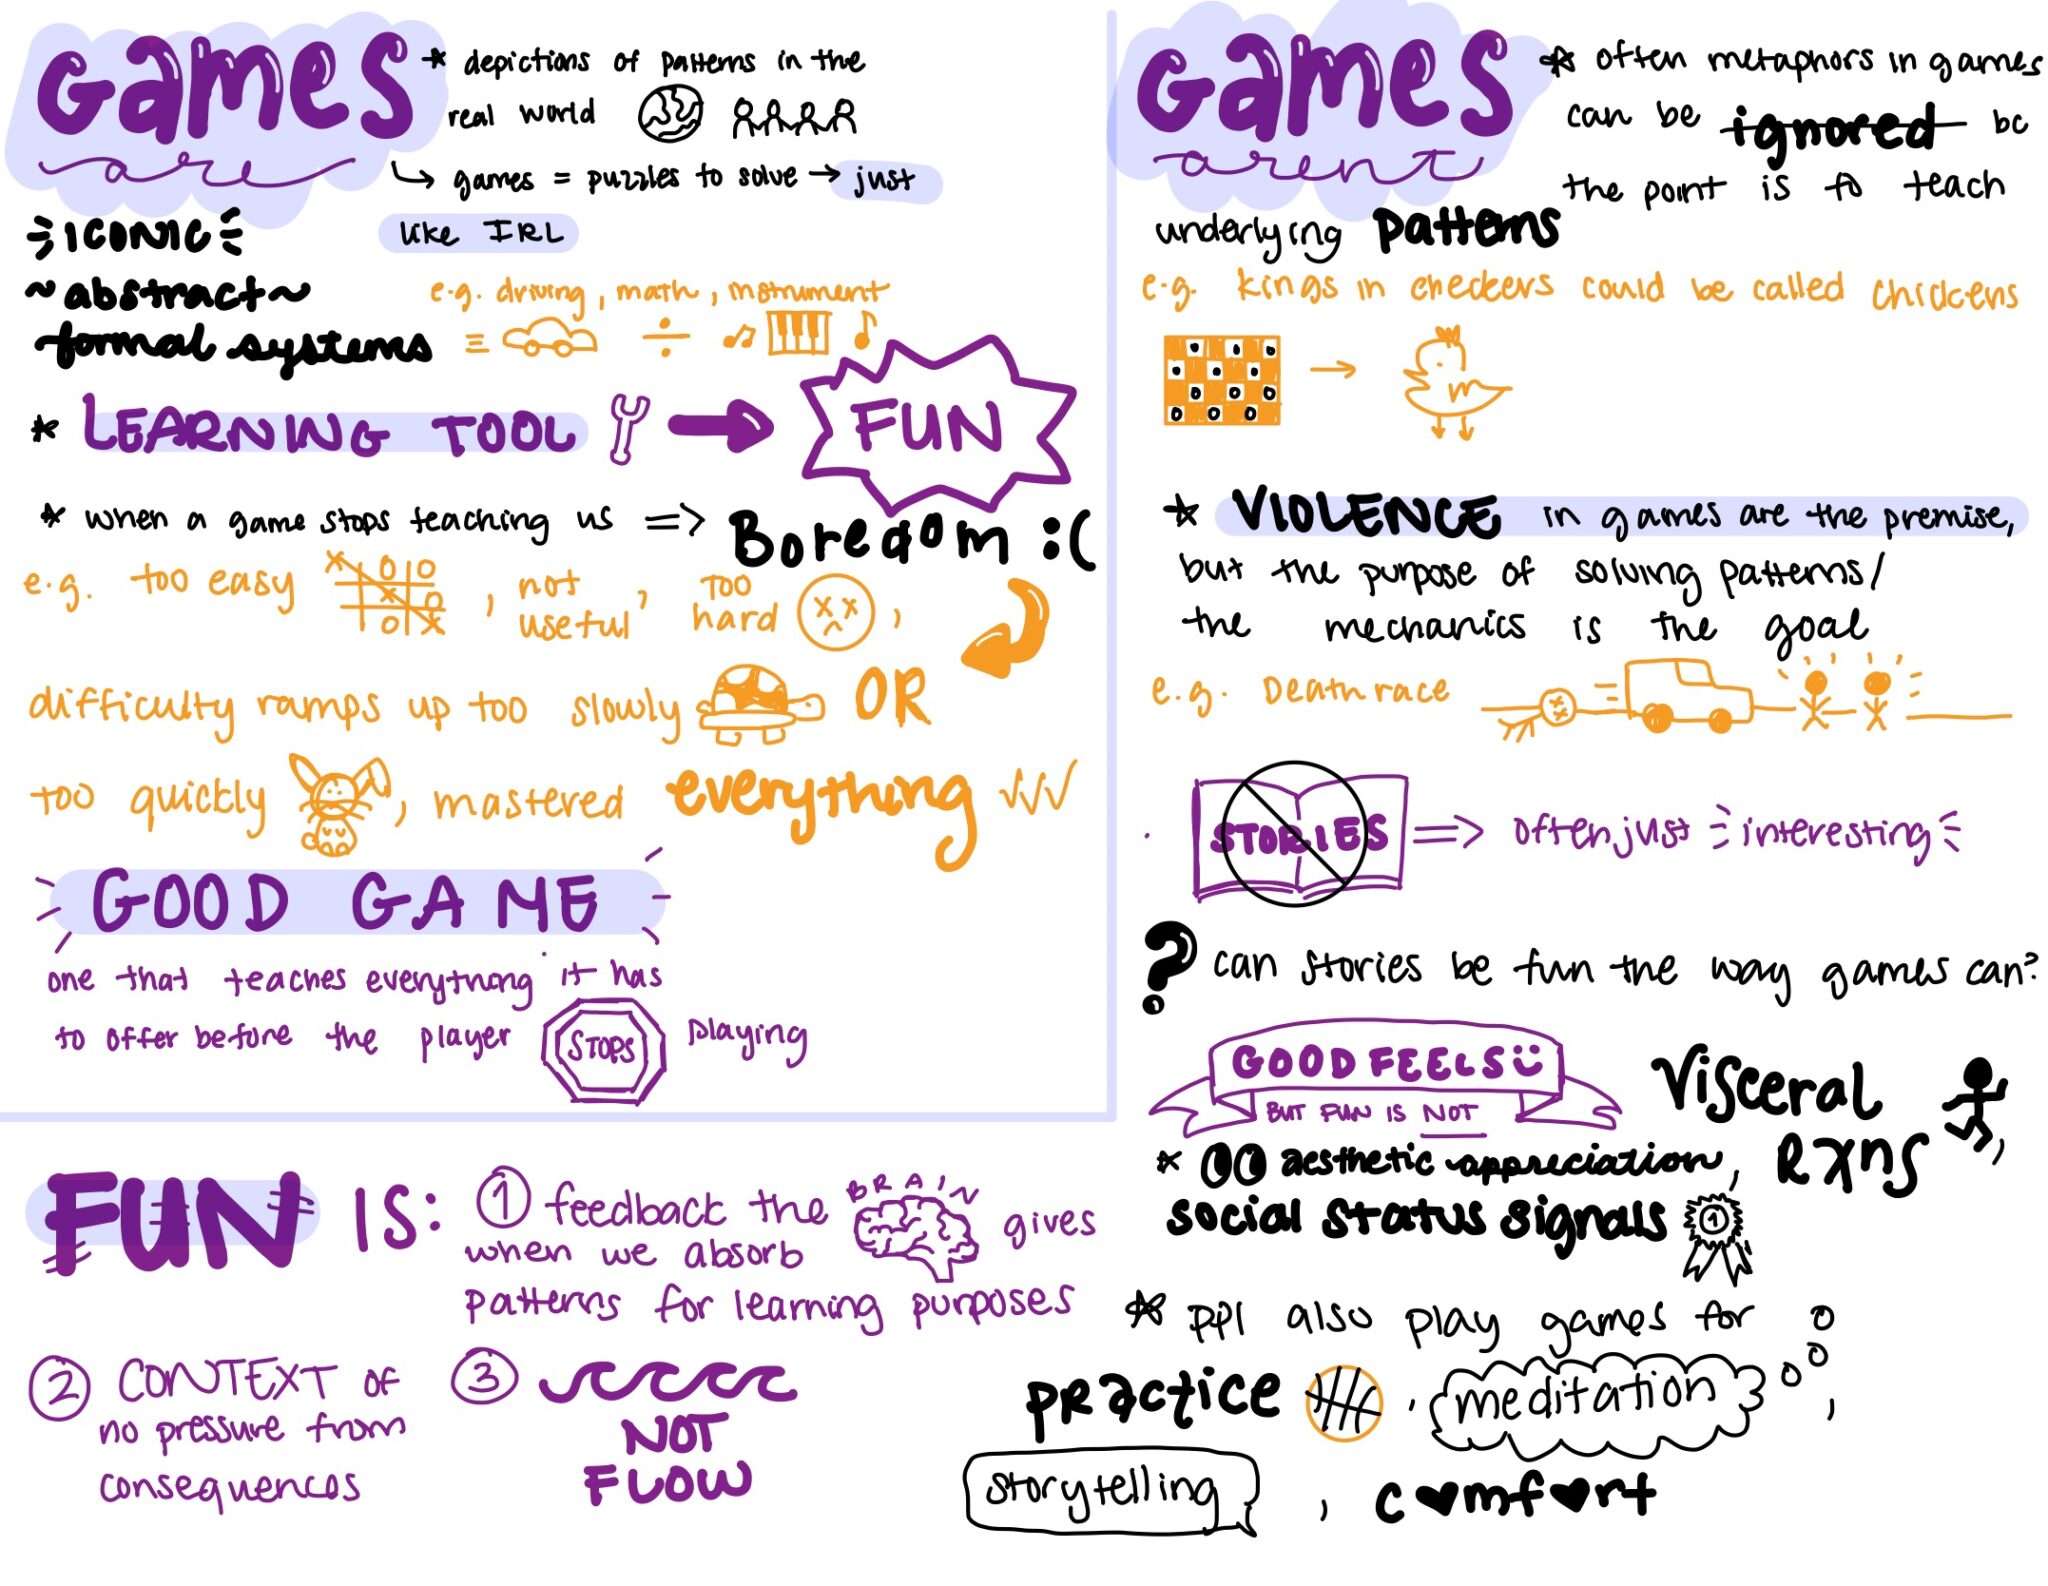 Games
are
* depictions of patterns in the
real world
↳ games = puzzles to solve → just
like IRL
ICONIC
~abstract~
formal systems
e.g. driving, math, instrument
* LEARNING TOOL → FUN
* when a game stops teaching us => Boredom :(
e.g. too easy, not useful, too hard,
difficulty ramps up too slowly OR
too quickly, mastered everything
GOOD GAME
one that teaches everything it has
to offer before the player STOPS playing
Games
arent
* often metaphors in games
can be ignored bc
the point is to teach
underlying patterns
e.g. kings in checkers could be called chickens
* VIOLENCE in games are the premise,
but the purpose of solving patterns/
the mechanics is the goal
e.g. Death race
STORIES => often just interesting
? can stories be fun the way games can?
GOOD FEELS
BUT FUN IS NOT
* aesthetic appreciation, visceral rxns,
social status signals
* ppl also play games for
practice, meditation,
storytelling, comfort
FUN IS:
1 feedback the BRAIN gives
when we absorb
patterns for learning purposes
2 CONTEXT of
no pressure from
consequences
3 NOT
FLOW